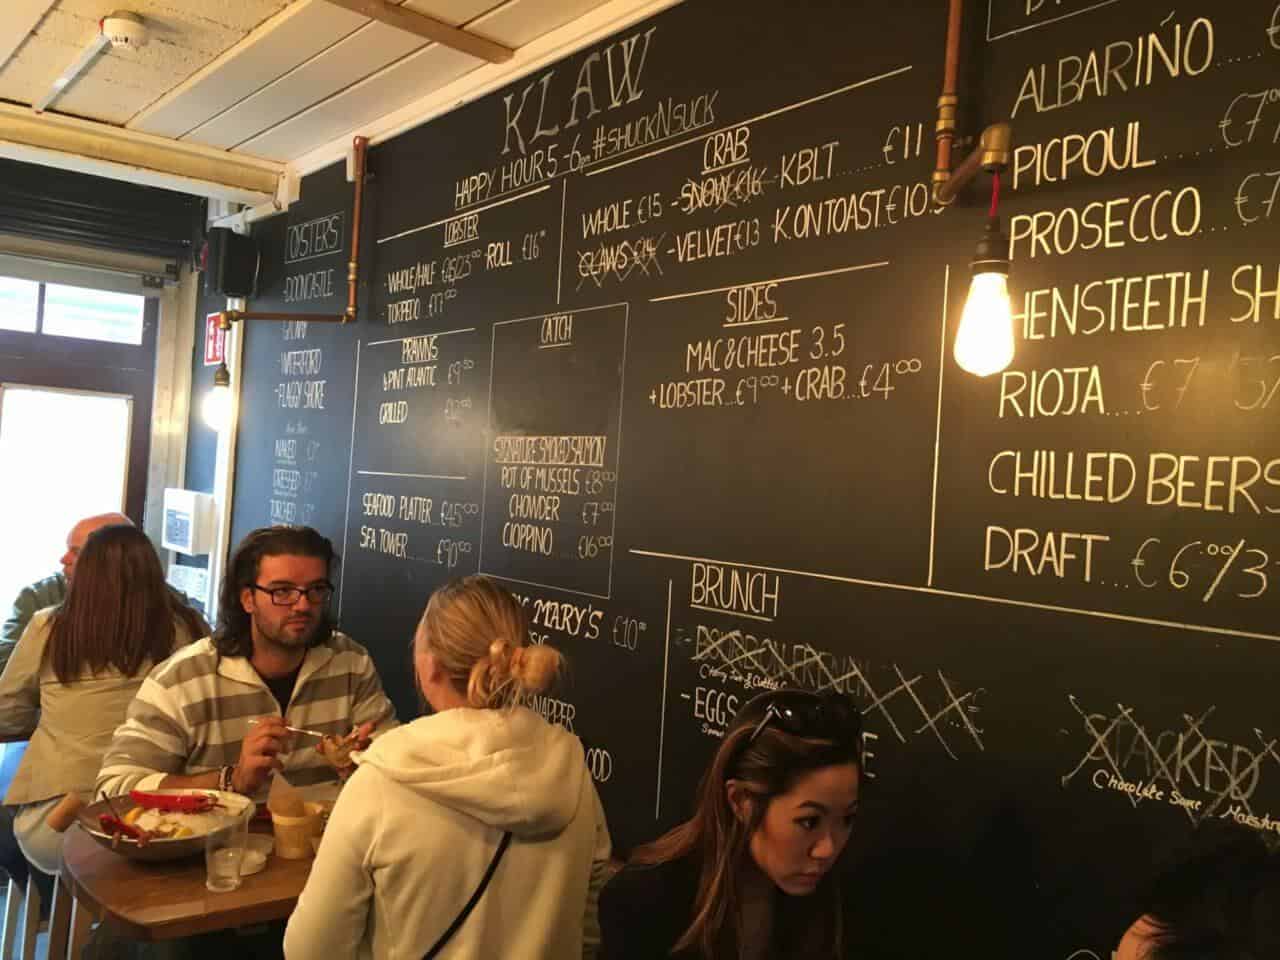 KLAW
HAPPY HOUR 5-6pm #SHUCKNSUCK
OYSTERS
-DOONCASTLE
-WATERFORD
-FLAGGY SHORE
NAKED
DRESSED
TORCHED
LOBSTER
-WHOLE/HALF €45/23.00 -ROLL €16
-TORPEDO €17.00
CRAB
WHOLE €15 -SNOW €16 -KBLT......€11
CLAWS €14 -VELVET €13 -K.ON TOAST €10.5
PRAWNS
½ PINT ATLANTIC €9.50
GRILLED
SEAFOOD PLATTER €45.00
SEA TOWER......€90.00
CATCH
SIGNATURE SMOKED SALMON
POT OF MUSSELS €8.00
CHOWDER €7.00
CIOPPINO €16.00
SIDES
MAC & CHEESE 3.5
+ LOBSTER...€9.00 + CRAB...€4.00
MARY'S €10
SNAPPER
BRUNCH
- EGGS
STACKED
Chocolate Sauce
ALBARIÑO
PICPOUL €7
PROSECCO €7
HENSTEETH SH
RIOJA....€7
CHILLED BEERS
DRAFT....€6.00/3